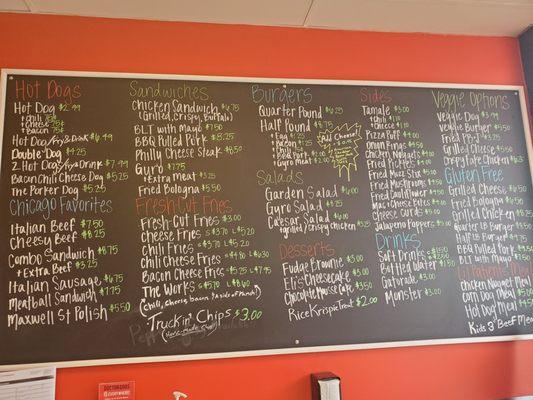 Hot Dogs
Hot Dog $2.99
+ Chili 75¢
+ Cheese 75¢
+ Bacon 75¢
Hot Dog/Fry & Drink $6.49
Double-Dog $4.25
2-Hot Dog/Fry & Drink $7.99
Bacon Chili Cheese Dog $5.25
The Porter Dog $5.25
Chicago Favorites
Italian Beef $7.50
Cheesy Beef $8.25
Combo Sandwich $8.75
+ Extra Beef $3.25
Italian Sausage $6.75
Meatball Sandwich $7.75
Maxwell St Polish $5.50
Sandwiches
Chicken Sandwich $6.75
(Grilled, Crispy, Buffalo)
BLT with Mayo $7.50
BBQ Pulled Pork $8.25
Philly Cheese Steak $8.50
Gyro $7.75
+ Extra Meat $3.25
Fried Bologna $5.50
Fresh-Cut Fries
Fresh-Cut Fries $3.00
Cheese Fries S $3.70 L $5.20
Chili Fries S $3.70 L $5.20
Chili Cheese Fries S $4.80 L $6.30
Bacon Cheese Fries S $5.25 L $7.95
The Works S $5.70 L $8.60
(Chili, Cheese, bacon & side of Ranch)
Truckin' Chips $3.00
(Home-Made Chips)
Burgers
Quarter Pound $6.25
Half Pound $8.75
+ Egg $.75
+ Bacon
+ Chili
+ BBQ Pulled
Pork $2.00
Add Cheese
Salads
Garden Salad $6.00
Gyro Salad $8.25
Caesar Salad $6.00
+ grilled/crispy Chicken $3.25
Desserts
Fudge Brownie $3.00
Eli's Cheesecake $3.00
Chocolate Mousse Cake $3.50
Rice Krispie Treat $2.00
Sides
Tamale $3.00
+ Chili
+ Cheese
Pizza Puff $4.00
Onion Rings $4.50
Chicken Nuggets
Fried Pickles
Fried Muzz Stix
Fried Mushrooms
Fried Cauliflower
Mac & Cheese Bites
Cheese Curds $5.00
Jalapeno Poppers
Drinks
Soft Drinks
Bottled Water
Gatorade $3.00
Monster $3.00
Veggie Options
Veggie Dog $3.99
Veggie Burger $5.50
Fried Pepper
Grilled Cheese $5.50
Crispy Fake Chicken
Gluten Free
Grilled Cheese
Fried Bologna $6.50
Grilled Chicken $8.25
Quarter LB Burger
Half LB Burger
BBQ Pulled Pork
BLT with Mayo
Lil Patients Menu
Chicken Nugget Meal
Corn Dog Meal
Hot Dog Meal
Kids 3" Beef Meal